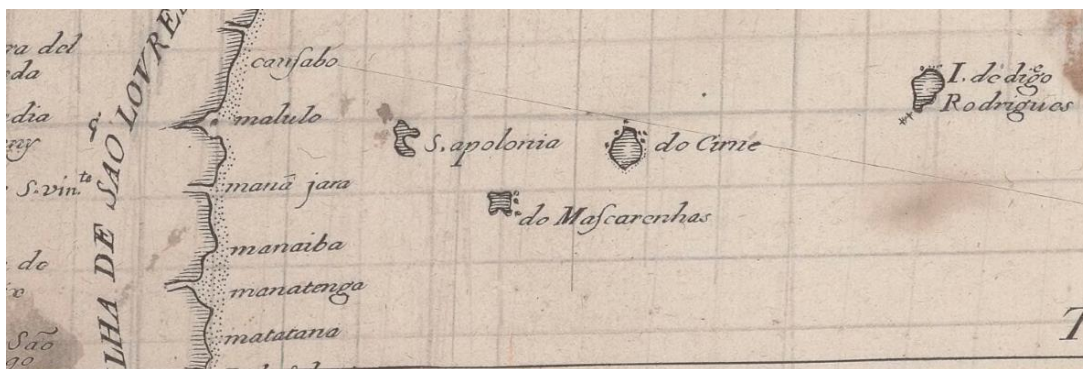 ra del
nda
dia
ny
S. vin.to
de
São
go
ILHA DE SAÕ LOVRE
cauſabo
malulo
manã jara
manaiba
manatenga
matatana
S. apolonia
do Cirne
do Maſcarenhas
I. de digo
Rodrigues
T